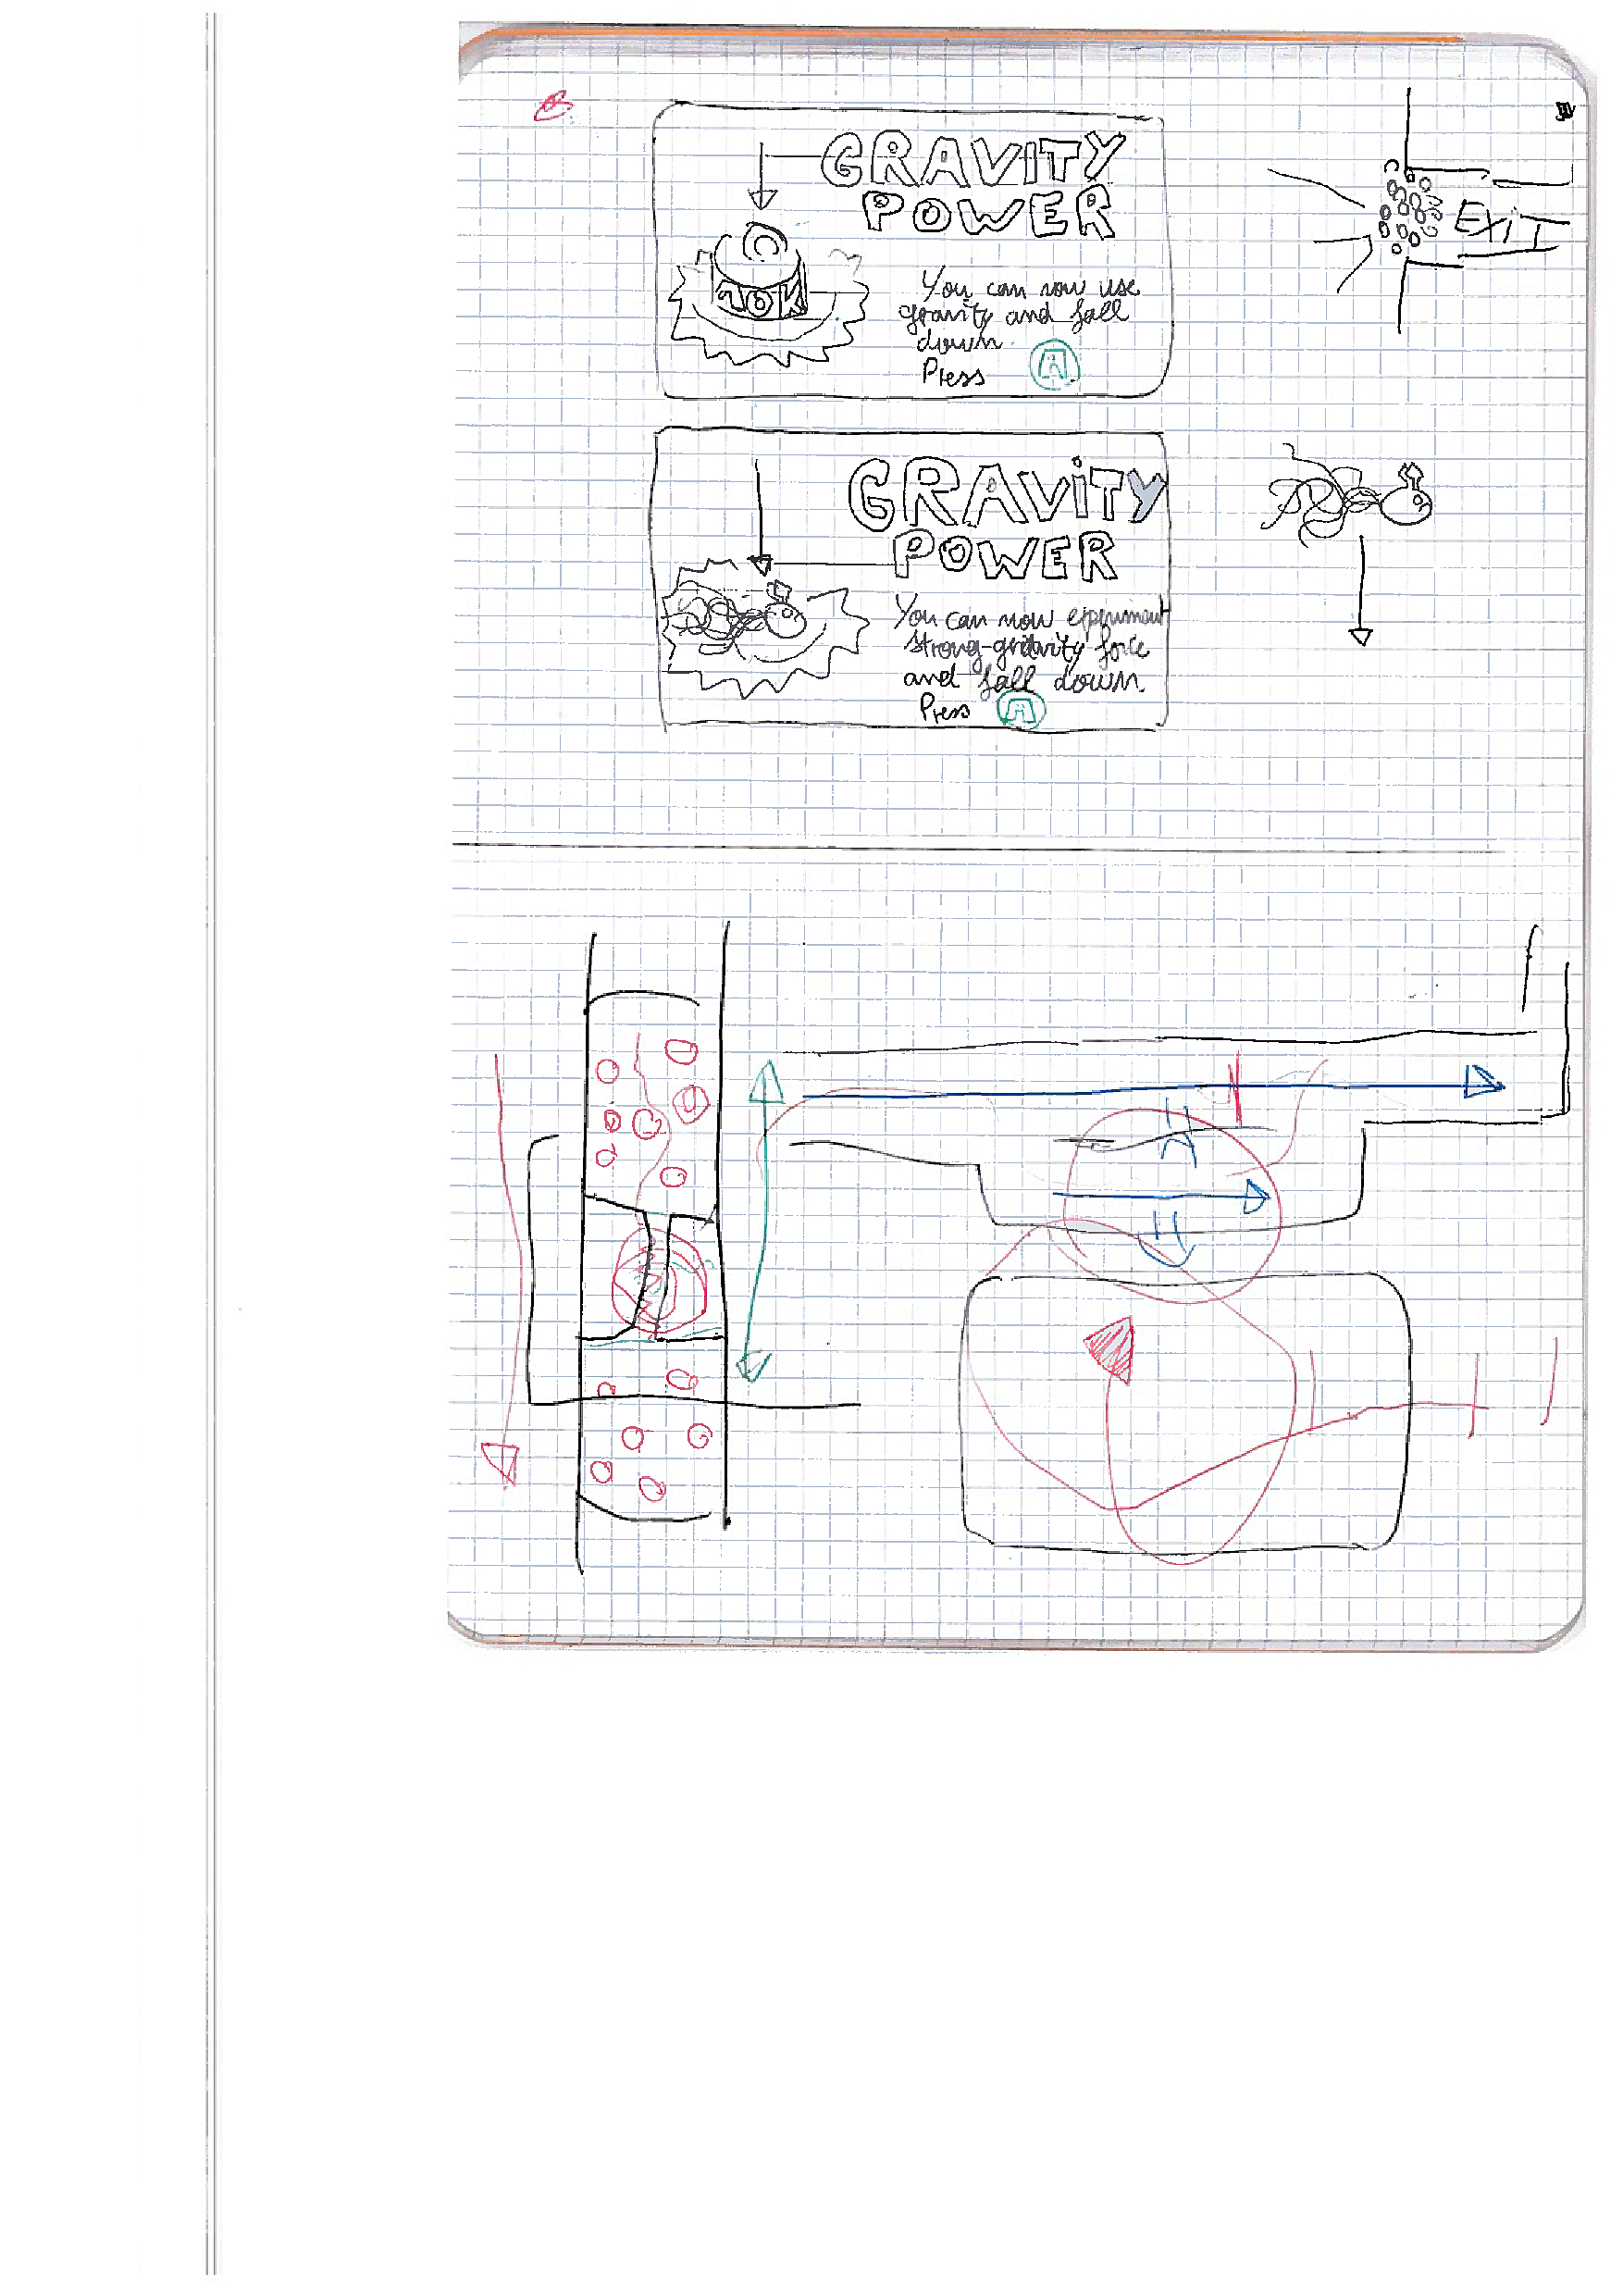 GRAVITY
POWER
10K
You can now use
gravity and fall
down.
Press A
EXIT
GRAVITY
POWER
You can now experiment
strong gravity force
and fall down.
Press A